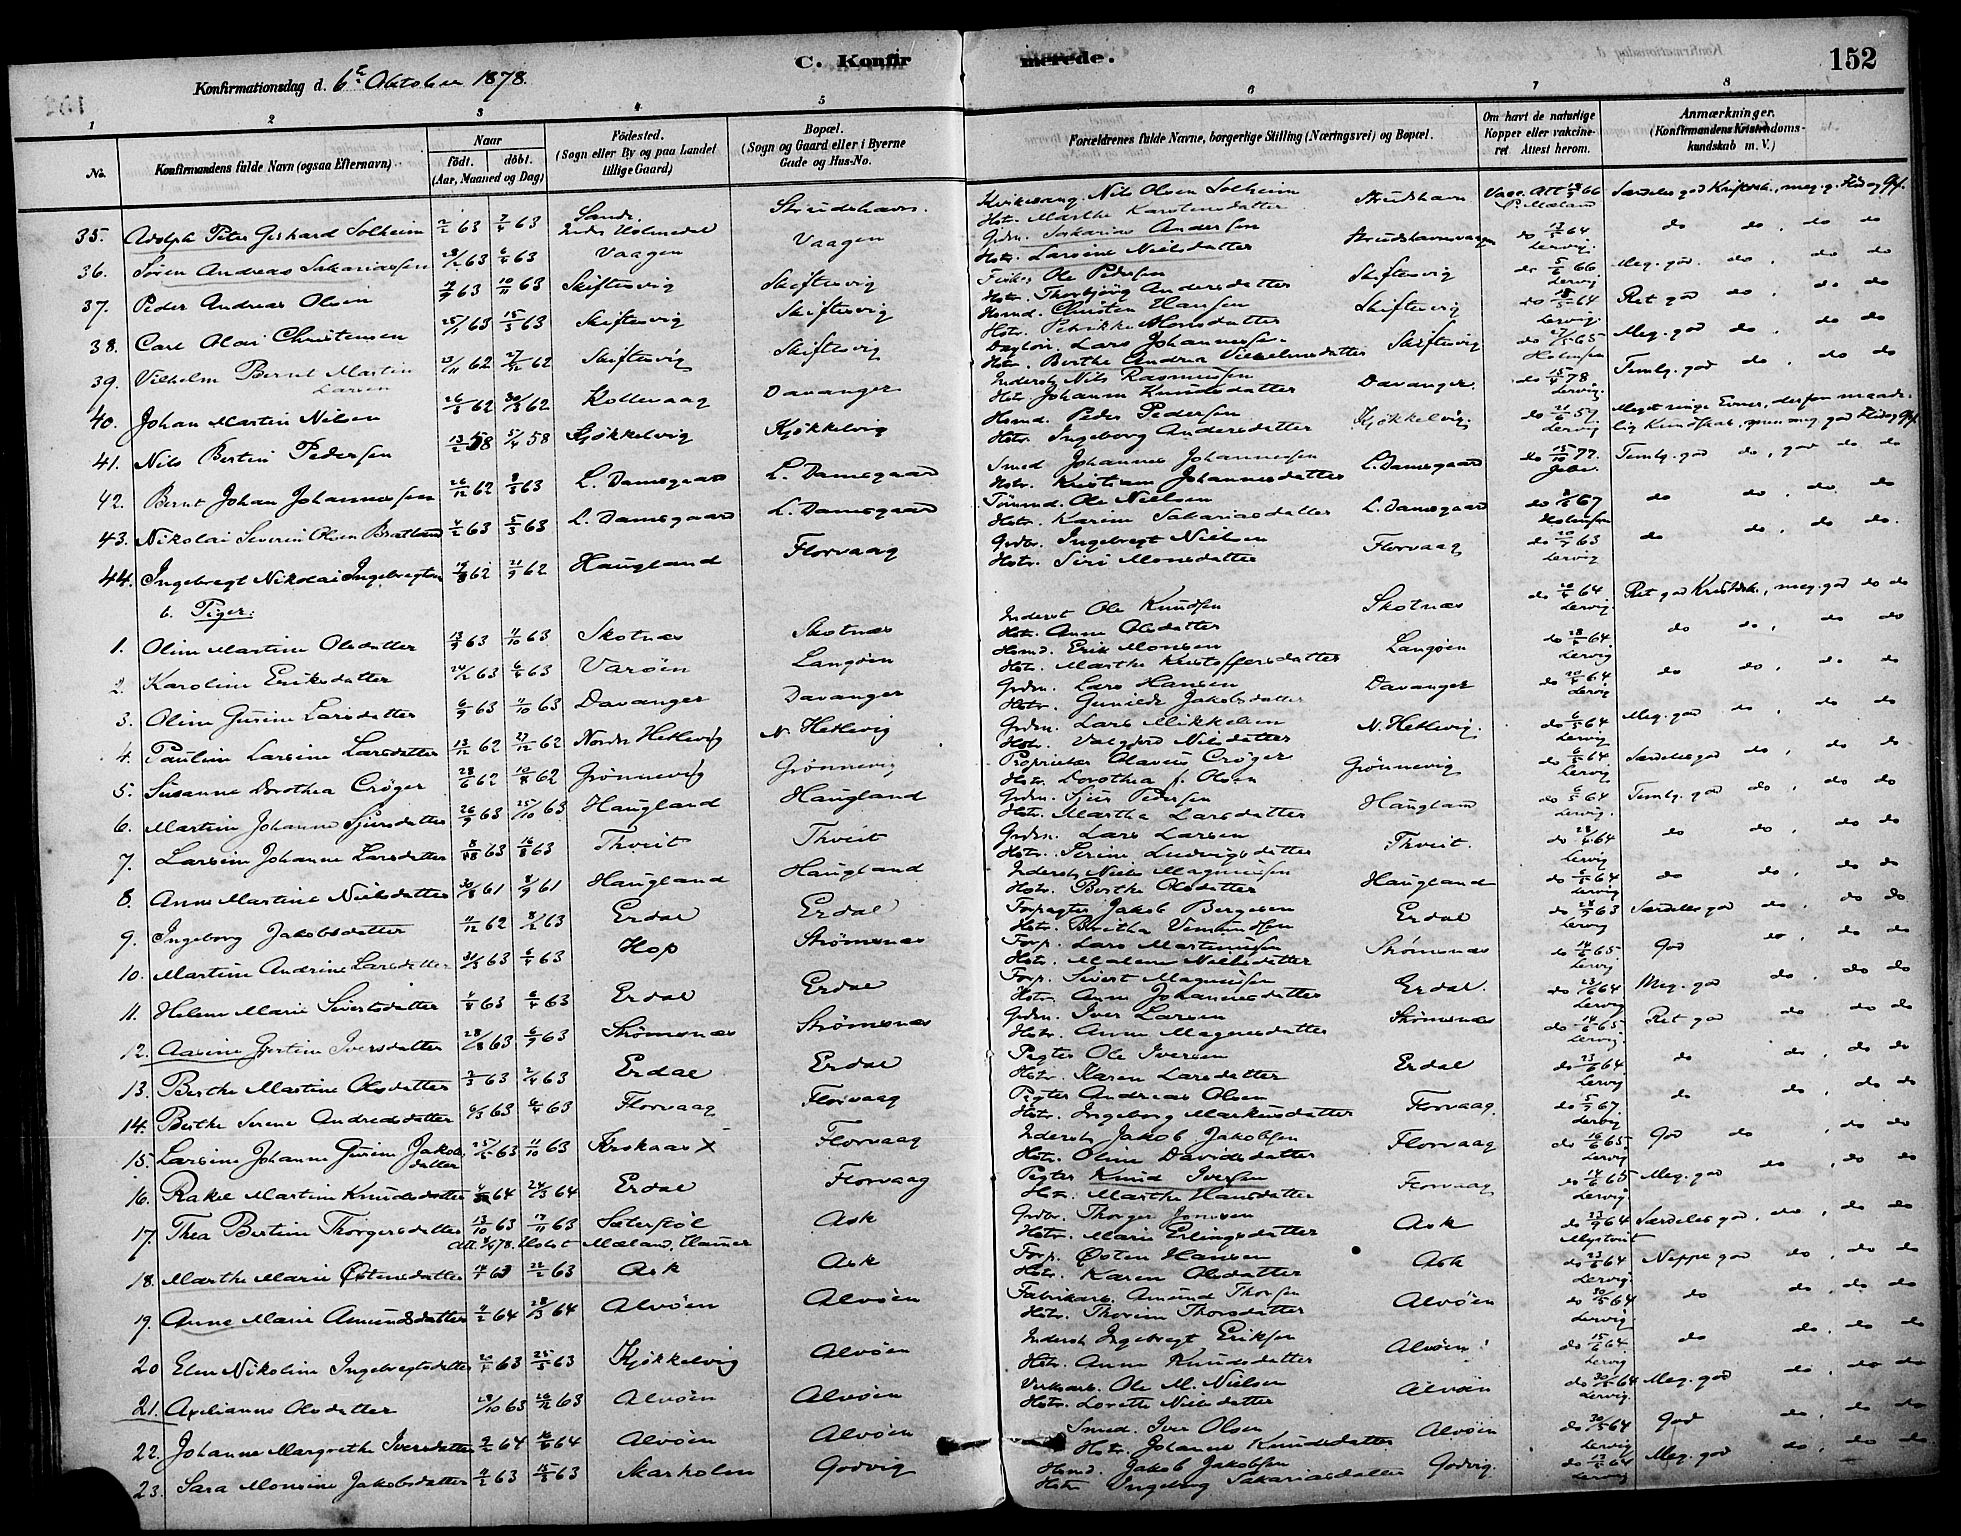 C. Konfirmerede. 152
Konfirmationsdag d. 6te Oktober 1878.
1 2 3 4 5 6 7 8
No. Konfirmandens fulde Navn (ogsaa Efternavn). Naar født. døbt. (Aar, Maaned og Dag) Fødested. (Sogn eller By og paa Landet tillige Gaard) Bopæl. (Sogn og Gaard eller i Byerne Gade og Hus-No. Forældrenes fulde Navne, borgerlige Stilling (Næringsvei) og Bopæl. Om havt de naturlige Kopper eller vakcineret Attest herom. Anmærkninger. (Konfirmandens Kristendomskundskab m. V.)
35. Adolph Peter Gerhard Solheim 2/2 63 7/4 63 Sande, Indre Holmedal Strudshavn. Nils Olsen Solheim Hstr. Marthe Karstensdatter Strudshavn Vacc. Att. 66 P. Mæland Særdeles god Kristdk., meg. g. Flid og Opf.
36. Søren Andreas Sakariassen 63 6/4 63 Vaagen Vaagen Grdm. Sakarias Andersen Hstr. Larsine Nielsdatter Strudshavnsvaagen do 64 Lervig. do do, do do
37. Peder Andreas Olsen 63 10/11 63 Skiftesvig Skiftesvig Ole Pedersen Hstr. Thorbjørg Andersdatter Skiftesvig do 5/6 66 Lervig Meg. god do, do do
38. Carl Olai Christensen 25/1 63 15/3 63 Skiftesvig Skiftesvig Hsmd. Christen Hansen Hstr. Petrikke Monsdatter Skiftesvig do 64 Lervig. Ret god do, do do
39. Vilhelm Bernt Martin Larsen /11 62 27/12 62 Skiftesvig Skiftesvig Lars Johannesen Hstr. Berthe Andrea Vilhelmsdatter Skiftesvig do 65 Holmsen Meg. god do, do do
40. Johan Martin Nilsen 26/2 62 30/3 62 Kollevaag Davanger Inderst. Nils Rasmussen Hstr. Johanna Knudsdatter Davanger do 15/4 78 Lervig. Temlig god do, do do
41. Nils Bertin Pedersen 13/2 58 5/4 58 Kjøkkelvig Kjøkkelvig Hsmd. Peder Pedersen Hstr. Ingeborg Andersdatter Kjøkkelvig do 21/6 59 Lervig Meget ringe Evner, derfor maadelig Kundskab, men meg. god Flid og Opf.
42. Bernt Johan Johannessen 26/12 62 8/3 63 L. Damsgaard L. Damsgaard Smed Johannes Johannessen Hstr. Johannesdatter L. Damsgaard do 13/10 77. Temlig god do, god do do
43. Nikolai Severin Olsen Bratland 4/2 63 5/3 63 L. Damsgaard L. Damsgaard Tømmd. Ole Nielsen Hstr. Karine Sakariasdatter L. Damsgaard do 67 Holmsen do do, do do
44. Ingebregt Nikolai Ingebregtsen 62 21/9 62 Haugland Florvaag Grdbr. Ingebregt Nielsen Hstr. Siri Monsdatter Florvaag do 20/7 63 Lervig do do, do do.
b. Piger:
1. Oline Martine Olsdatter 13/9 63 11/10 63 Skotnæs Skotnæs Inderst Ole Knudsen Hstr. Anne Olsdatter Skotnæs do 64 Lervig. Ret god Kristdk., meg. god do do
2. Karoline Eriksdatter 24/2 63 6/4 63 Varøen Langøen Hsmd. Erik Monsen Hstr. Marthe Kristoffersdatter Langøen do 64 Lervig do do, do do
3. Oline Gurine Larsdatter 6/9 63 11/10 63 Davanger Davanger Grdm. Lars Hansen Hstr. Gunilde Jakobsdatter Davanger do 20/4 64 Lervig do do, do do
4. Pauline Larsine Larsdatter 13/12 62 27/12 62 Nordre Hetlevig N. Hetlevig Grdm. Lars Mikkelsen Hstr. Valgjerd Nilsdatter N. Hetlevig. do 6/5 64 Lervig Meg. god do, do do
5. Susanne Dorothea Crøger 28/6 62 10/8 62 Grønnevig Grønnevig Proprietær Olavus Crøger Hstr. Dorothea f. Olsen Grønnevig do 6/5 64 Lervig Særdeles god do, do do
6. Martine Johanne Sjursdatter 26/9 63 25/10 63 Haugland Haugland Grdm. Sjur Pedersen Hstr. Martha Larsdatter Haugland do 6/5 64 Lervig. Temlig god do, do do
7. Larsine Johanne Larsdatter 63 16/8 63 Thveit Thveit Grdm. Lars Larsen Hstr. Serine Ludvigsdatter Thveit. do 28/4 64 Lervig do do, do do
8. Anne Martine Nielsdatter 30/8 61 8/9 61 Haugland Haugland Inderst. Niels Magnussen Hstr. Berthe Olsdatter Haugland do 6/5 64 Lervig do do, do do
9. Ingeborg Jakobsdatter 11/12 62 8/2 63 Erdal Erdal Forpagter Jakob Bergesen Hstr. Britha Vemundsen Erdal do 28/9 63 Lervig Særdeles god do, do do
10. Martine Andrine Larsdatter 31/3 63 6/4 63 Hop Strømsnæs Forp. Lars Martinussen Hstr. Malene Nilsdatter Strømsnæs do 14/6 65 Lervig God do, do do
11. Helene Marie Sivertsdatter 63 6/4 63 Erdal Erdal Forp. Sivert Magnussen Hstr. Anne Johannesdatter Erdal. do 23/6 64 Lervig Meg. god do, do do
12. Aasine Gjertine Iversdatter 28/8 63 6/9 63 Strømsnæs Strømsnæs Grdm. Iver Larsen Hstr. Anne Magnesdatter Strømsnæs do 14/6 65. Lervig. Ret god do, do do
13. Berthe Martine Olsdatter 2/3 63 2/4 63 Erdal Erdal Pagter Ole Iversen Hstr. Karen Larsdatter Erdal do 23/6 64. Lervig do do, do do
14. Berthe Serene Andreasdatter 6/3 63 6/4 63 Florvaag Florvaag Pagter Andreas Olsen Hstr. Ingeborg Markusdatter Florvaag. do 5/9 67. Lervig do do, do do
15. Larsine Johanne Gurine Jakobsdatter 63 11/10 63 Krokaas X Florvaag Inderst. Jakob Jakobsen Hstr. Oline Davidsdatter Florvaag do 16/6 65 Lervig God do do, do do
16. Rakel Martine Knudsdatter 64 24/3 64 Erdal Florvaag Pagter Knud Iversen Hstr. Marthe Hansdatter Florvaag do 14/6 65 Lervig. Meg. god do, do do
17. Thea Bertine Thorgersdatter 13/10 63 63 Sæterstøl Ask Grdbr. Thorger Jonssen Hstr. Marie Erlingsdatter Ask do 23/9 64 Særdeles god, do, do do
18. Marthe Marie Østensdatter 63 22/2 63 Ask Ask Forp. Østen Hansen Hstr. Karen Olsdatter Ask do 23/6 64 Lervig Neppe god do, do do
19. Anne Marie Amundsdatter 11/2 64 28/3 64 Alvøen Alvøen Fabrikarb. Amund Thorsen Hstr. Thorine Thorsdatter Alvøen do 30/5 64 Lervig. do do, do do
20 Elen Nikoline Ingebregtsdatter 63 25/5 63 Kjøkkelvig Alvøen Inderst Ingebregt Eriksen Hstr. Anne Knudsdatter Alvøen do 15/6 64. Lervig do do, do do
21. Axelianne Olsdatter /10 63 63 Alvøen Alvøen Verksarb. Ole M. Nielsen Hstr. Lorette Nilsdatter Alvøen do 30/5 64 Lervig. Meg. god do, do do
22. Johanne Margrethe Iversdatter 64 64 Alvøen Alvøen Smed. Iver Olsen Hstr. Johanne Knudsdatter Alvøen do 30/5 64 Lervig God do, do do
23. Sara Monsine Jakobsdatter 11/2 63 63 Markolm Godvig Hsmd. Jakob Jakobsen Hstr. Ingeborg Sakariasdatter Godvig. do 64 Lervig Meg. god do, do do